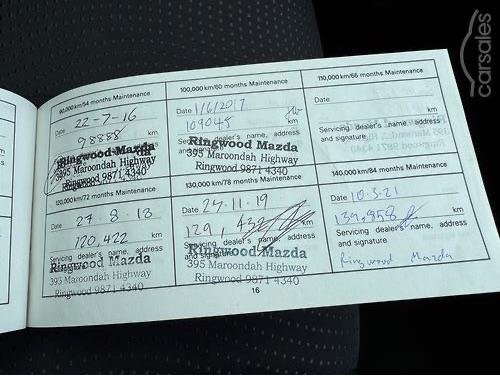 carsales
90,000 km/54 months Maintenance
Date 22-7-16
98888 km
Ringwood Mazda
395 Maroondah Highway
Ringwood 9871 4340
100,000 km/60 months Maintenance
Date 1/6/2017
109045 km
Servicing dealer's name, address
Ringwood Mazda
395 Maroondah Highway
Ringwood 9871 4340
110,000 km/66 months Maintenance
Date
km
Servicing dealer's name, address
and signature
120,000 km/72 months Maintenance
Date 27.8.18
120,422 km
Servicing dealer's name, address
and signature
Ringwood Mazda
395 Maroondah Highway
Ringwood 9871 4340
130,000 km/78 months Maintenance
Date 27.11.19
129, km
Servicing dealer's name, address
and signature
Ringwood Mazda
395 Maroondah Highway
Ringwood 9871 4340
140,000 km/84 months Maintenance
Date 10.5.21
km
Servicing dealer's name, address
and signature
Ringwood Mazda
16